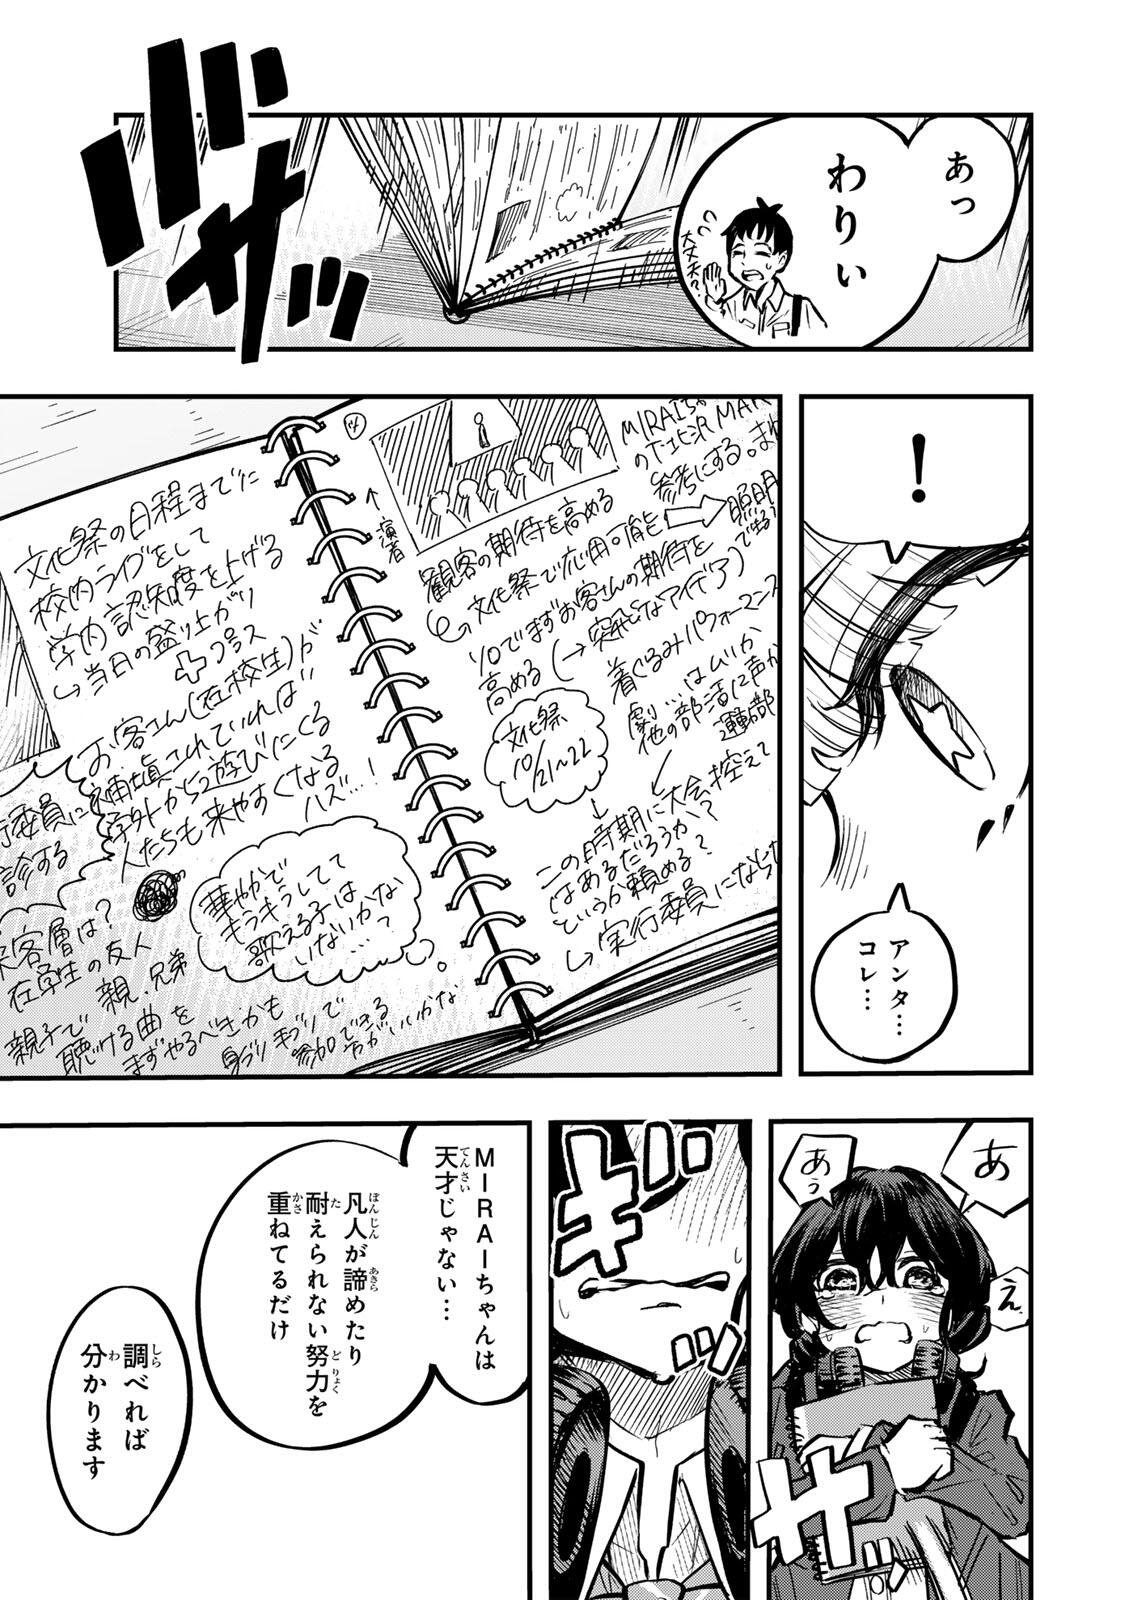 あっ
わりぃ
大丈夫?
バサッ
!
アンタ…
コレ…
MIRAIちゃ
の下北沢MAR
参考にする。まね
照明
で出る
↑演者
観客の期待を高める
文化祭で応用可能
10でまずお客さんの期待を
高める(→突飛なアイデア)
着ぐるみパフォーマンス
劇…はムリか
他の部活に声か
運動部
文化祭
10/21~22
この時期に大会控えて
はあるだろうか?
というか頼める?
実行委員にならな
文化祭の日程までに
校内ライブをして
学内認知度を上げる
当日の盛り上がり
+プラス
お客さん(在校生)が
補填されていれば
学外から遊びにくる
人たちも来やすくなる
ハズ…!
行委員に
診する
華やかで
キラキラしてて
歌える子は
いないかな
…?
来客層は?
在学生の友人
親、兄弟
親子で
聴ける曲を
まずやるべきかも
身ブリ手ブリで
参加できる
方がいいかな
あ
あぅ
え
ザザ
ギギ
MIRAIちゃんは
天才じゃない…
てんさい
凡人が諦めたり
ぼんじん
あきら
耐えられない努力を
た
どりょく
重ねてるだけ
かさ
調べれば
しら
分かります
わ